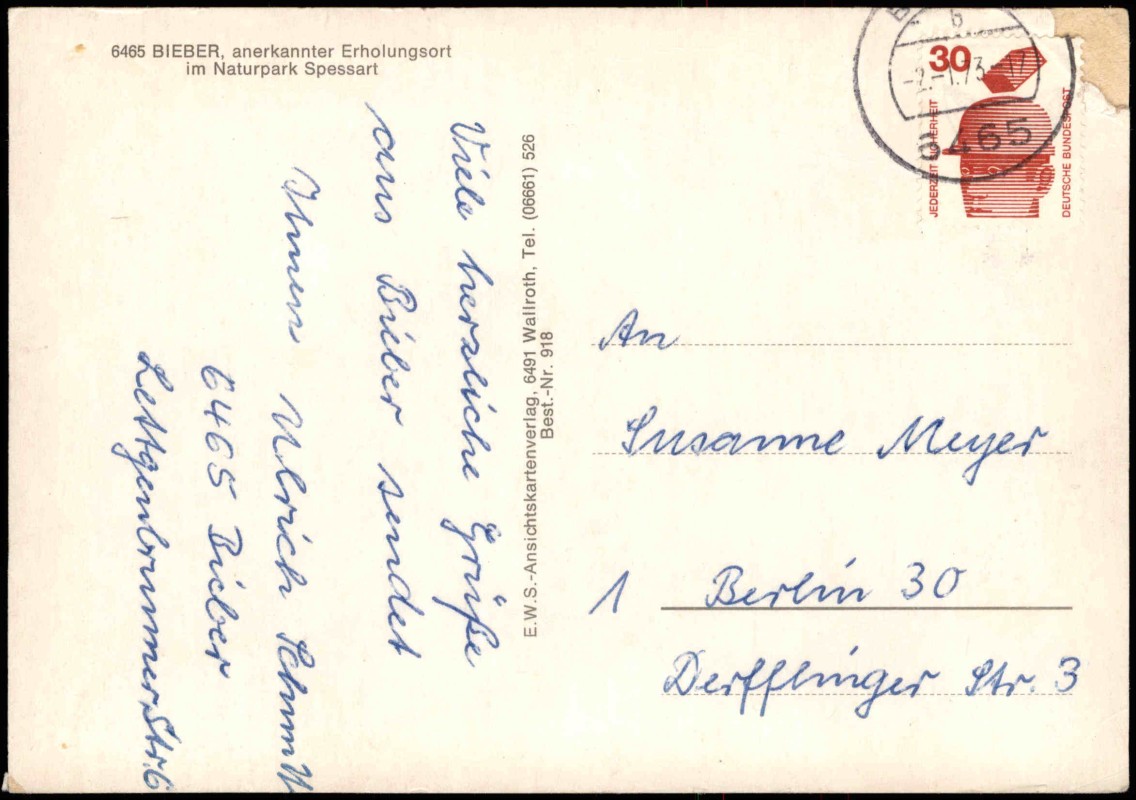 6465 BIEBER, anerkannter Erholungsort
im Naturpark Spessart
Viele herzliche Grüße
aus Bieber sendet
Ihnen Ulrich
6465 Bieber
Lettgenbrunner Str. 6
E.W.S.-Ansichtskartenverlag, 6491 Wallroth, Tel. (06661) 526
Best.-Nr. 918
30
JEDERZEIT SICHERHEIT
DEUTSCHE BUNDESPOST
b
-2.-1.73-17
6465
An
Susanne Meyer
1 Berlin 30
Derfflinger Str. 3